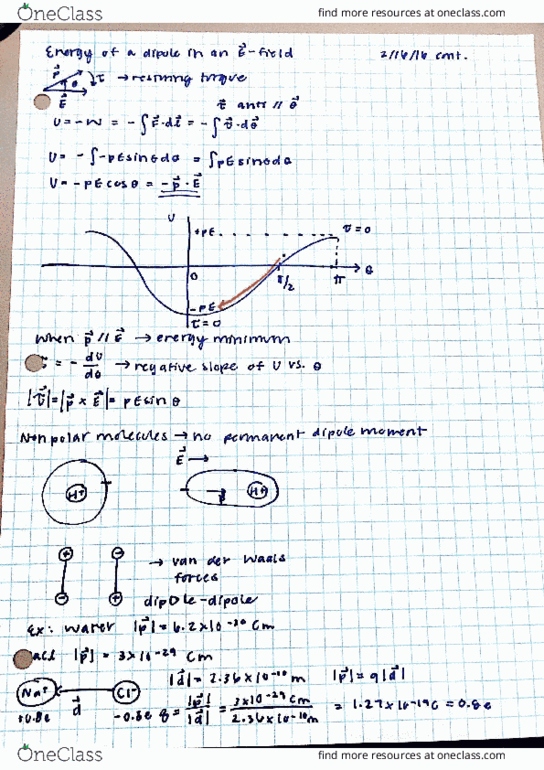 OneClass find more resources at oneclass.com
Energy of a dipole in an E-field 2/16/16 cont.
P θ τ → restoring torque
E
τ anti // θ
U = -W = -∫F·dl = -∫τ·dθ
U = -∫-pEsinθdθ = ∫pEsinθdθ
U = -pEcosθ = -p·E
U
+PE τ=0
0 π/2 π θ
-PE
τ=0
When p // E → energy minimum
= - dU/dθ → negative slope of U vs. θ
|τ|=|p × E|= pEsin θ
Nonpolar molecules → no permanent dipole moment
E →
H+ - p H+
+ - → van der Waals
forces
- + dipole-dipole
Ex: water |p| = 6.2x10⁻³⁰ Cm
|p| = 3x10⁻²⁹ Cm
|d| = 2.36x10⁻¹⁰ m |p| = q|d|
Na+ d Cl-
+0.8e -0.8e q = |p|/|d| = 3x10⁻²⁹ Cm / 2.36x10⁻¹⁰m = 1.27x10⁻¹⁹C = 0.8e
OneClass find more resources at oneclass.com